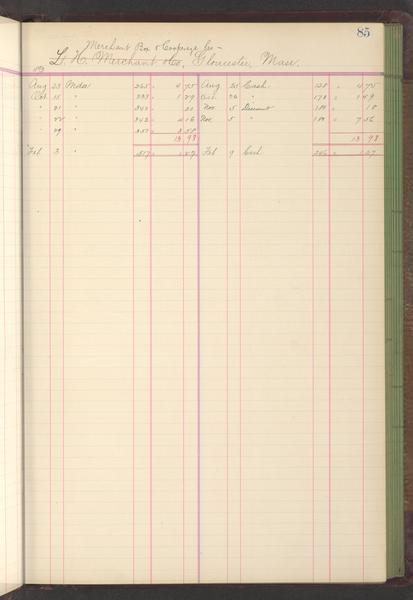 85
Merchant Box & Cooperage Co -
L. H. Merchant & Co, Gloucester Mass.
Aug 23 Mdse 265 " 4 75 Aug 25 Cash 128 " 4 75
Oct 15 " 333 " 1 49 Oct 26 " 173 " 1 49
" 21 " 340 " 21 Nov 5 Discount 189 " 18
" 22 " 342 " 4 16 Nov 5 " 189 " 7 56
" 29 " 357 " 3 58
13 98 13 98
Feb 3 " 517 " 1 27 Feb 9 Cash 266 " 1 27